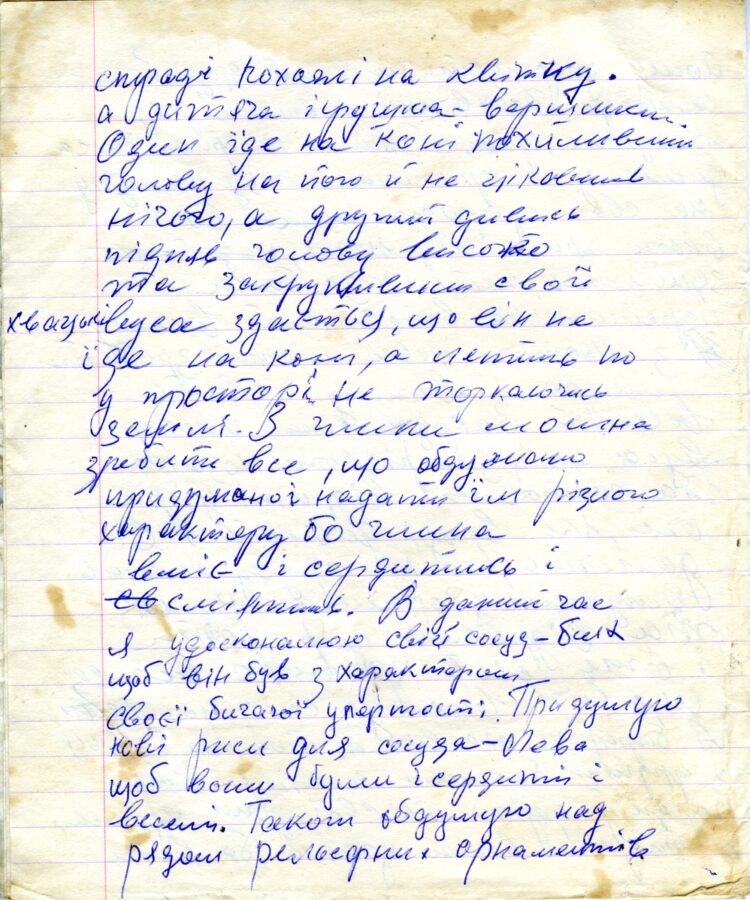 спураді похожі на квітку.
а дитяча ігрушка – вершники.
Один їде на коні похиливши
голову на його й не ціковить
нічого, а другий дивись
підняв голову високо
та закрутивши свої
хвацькі вуса здається, що він не
їде на коні, а летить по
у просторі не торкаючись
землі. З глини можна
зробити все, що обдумано
придумано і надати їм різного
характеру бо глина
вміє і сердитись і
сміятись. В даний час
я удосконалюю свій сосуд–бик
щоб він був з характером
своєї бичачої упертості. Придумую
нові риси для сосуда–Лева
щоб вони були і сердиті і
веселі. Також обдумую над
рядом рельєфних орнаментів